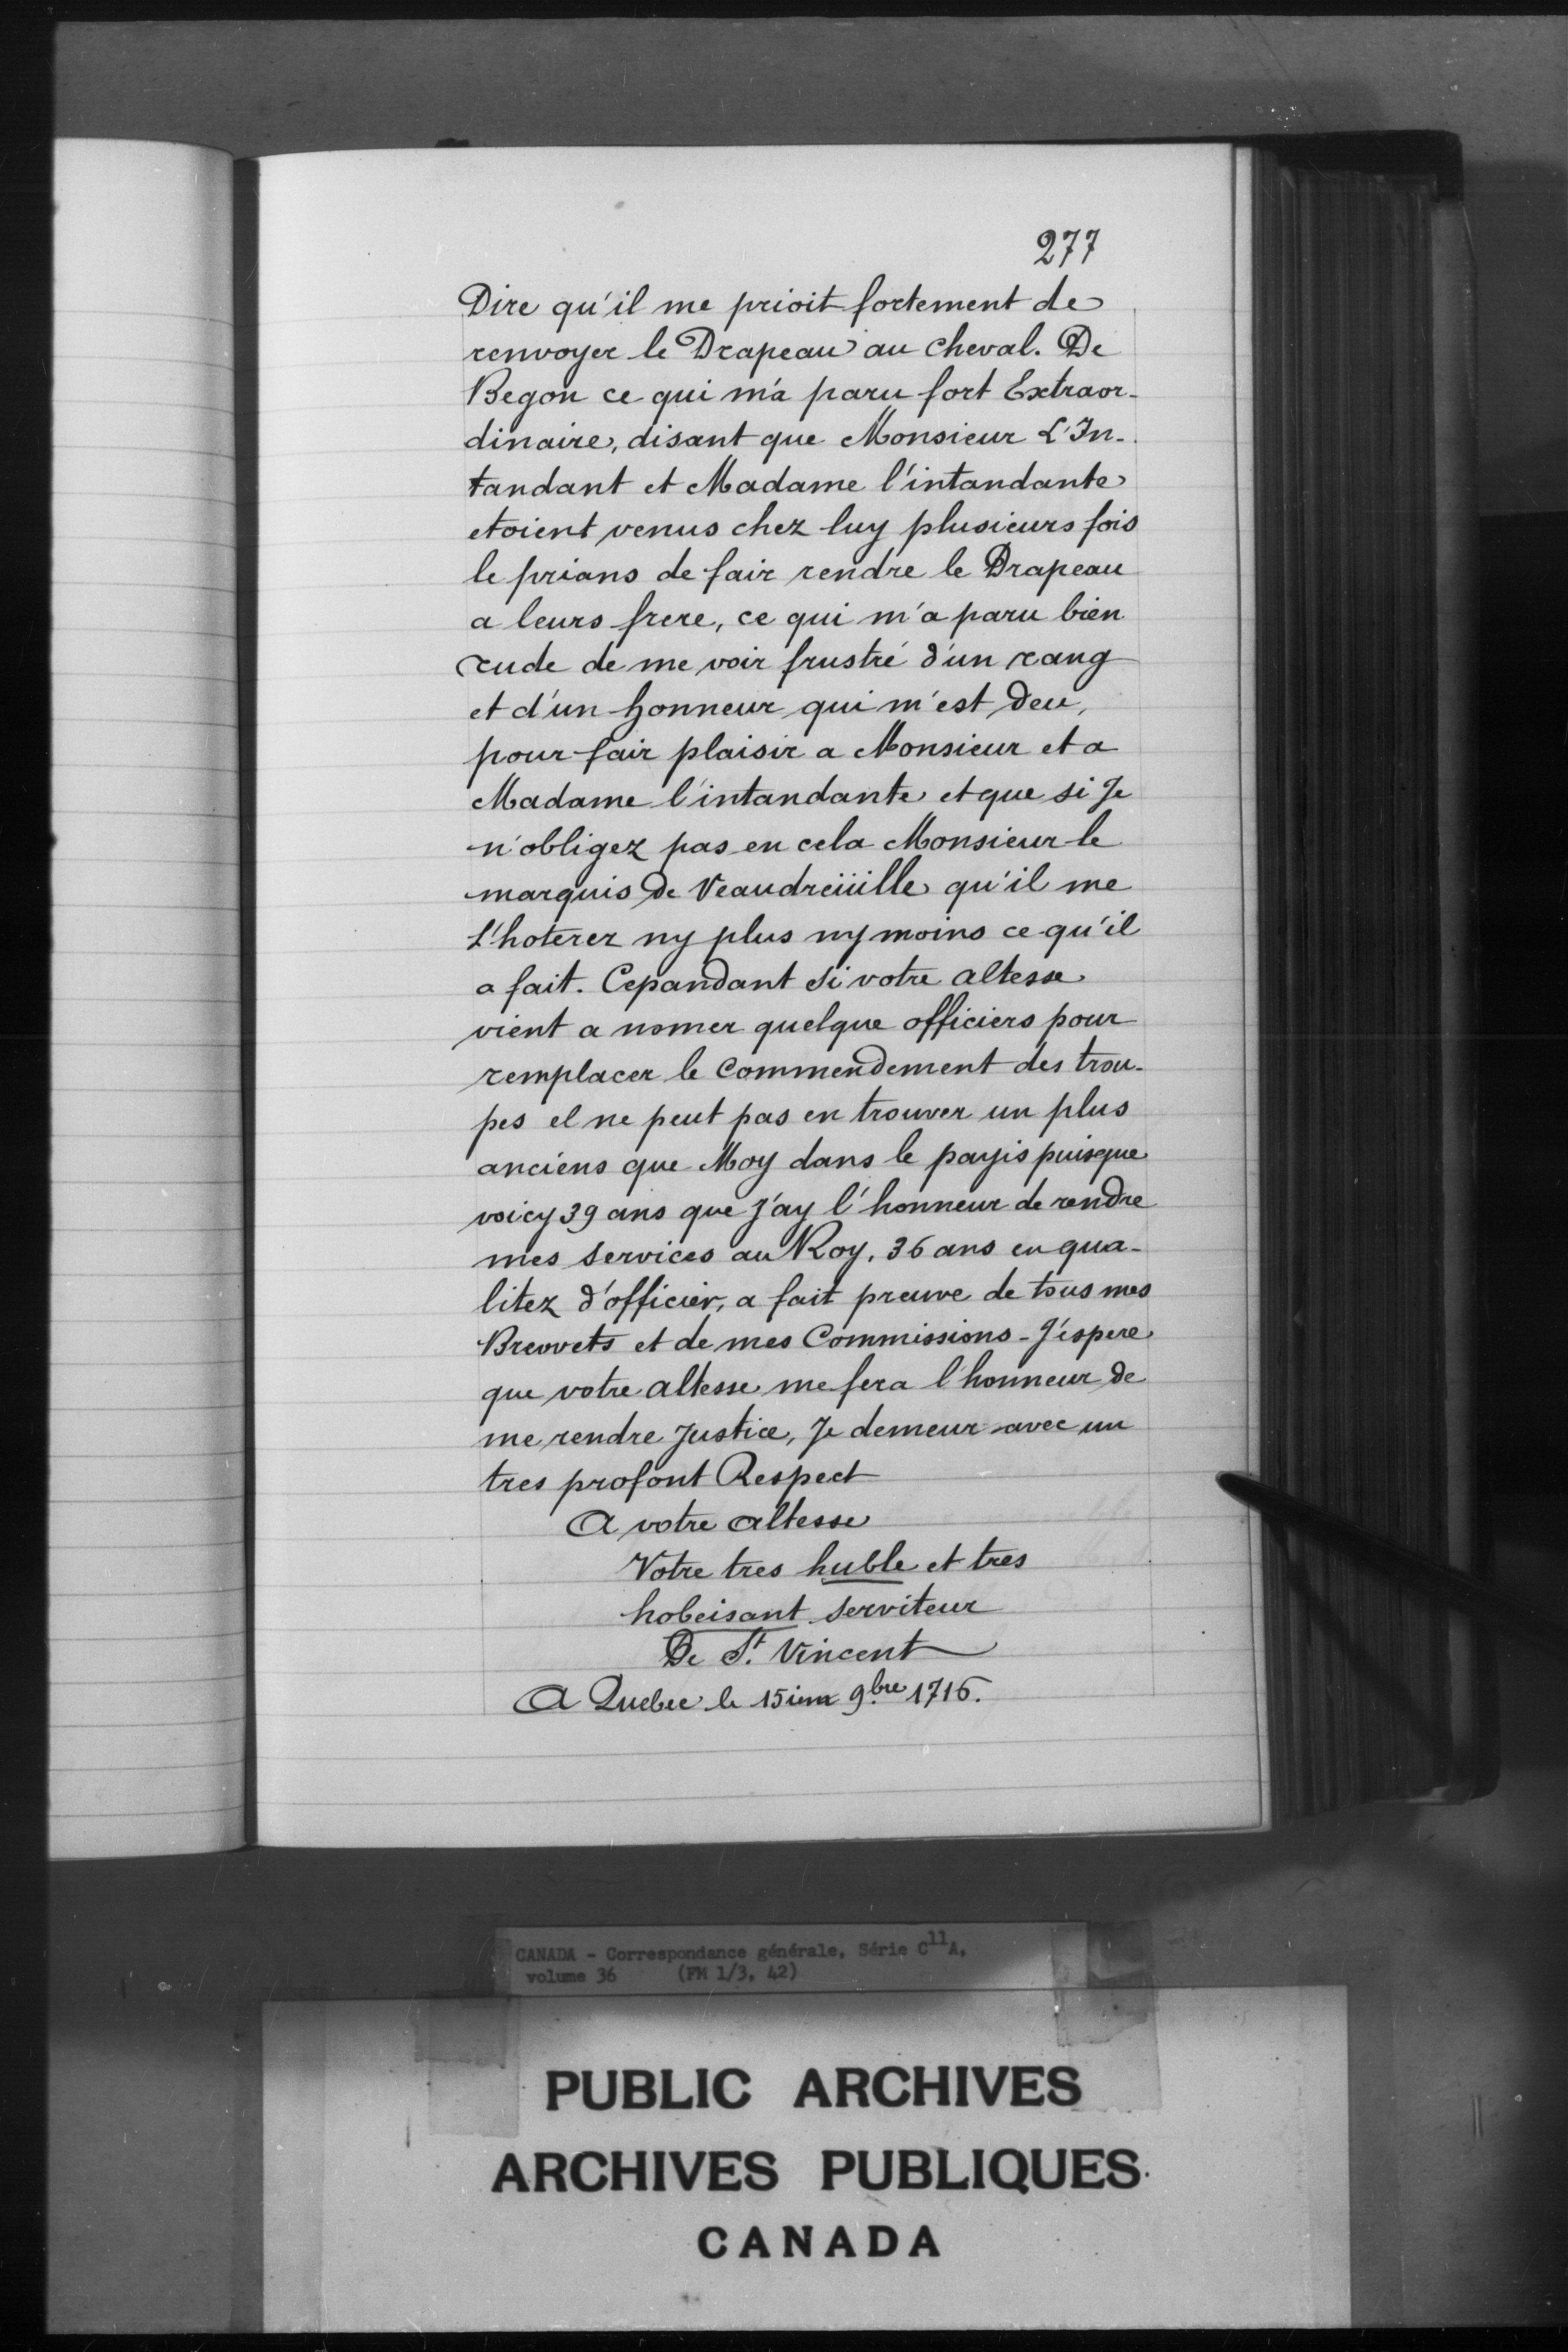 277
Dire qu'il me prioit fortement de
renvoyer le Drapeau au cheval. De
Begon ce qui m'a paru fort Extraor-
dinaire, disant que Monsieur L'In-
tandant et Madame l'intandante
etoient venus chez luy plusieurs fois
le prians de fair rendre le Drapeau
a leurs frere, ce qui m'a paru bien
rude de me voir frustré d'un rang
et d'un honneur qui m'est deu,
pour fair plaisir a Monsieur et a
Madame l'intandante et que si Je
n'obligez pas en cela Monsieur le
marquis De Veaudreüille qu'il me
l'hoterez ny plus ny moins ce qu'il
a fait. Cepandant si votre altesse
vient a nomer quelque officiers pour
remplacer le Commendement des trou-
pes el ne peut pas en trouver un plus
anciens que Moy dans le payis puisque
voicy 39 ans que J'ay l'honneur de rendre
mes services au Roy, 36 ans en qua-
litez d'officier, a fait preuve de tous mes
Brevvets et de mes Commissions - J'espere
que votre altesse me fera l'honneur de
me rendre Justice, Je demeur avec un
tres profont Respect
A votre altesse
Votre tres huble et tres
hobeisant serviteur
De St. Vincent
A Quebec le 15iem 9.bre 1716.
CANADA - Correspondance générale, Série C11A,
volume 36 (FM 1/3, 42)
PUBLIC ARCHIVES
ARCHIVES PUBLIQUES
CANADA